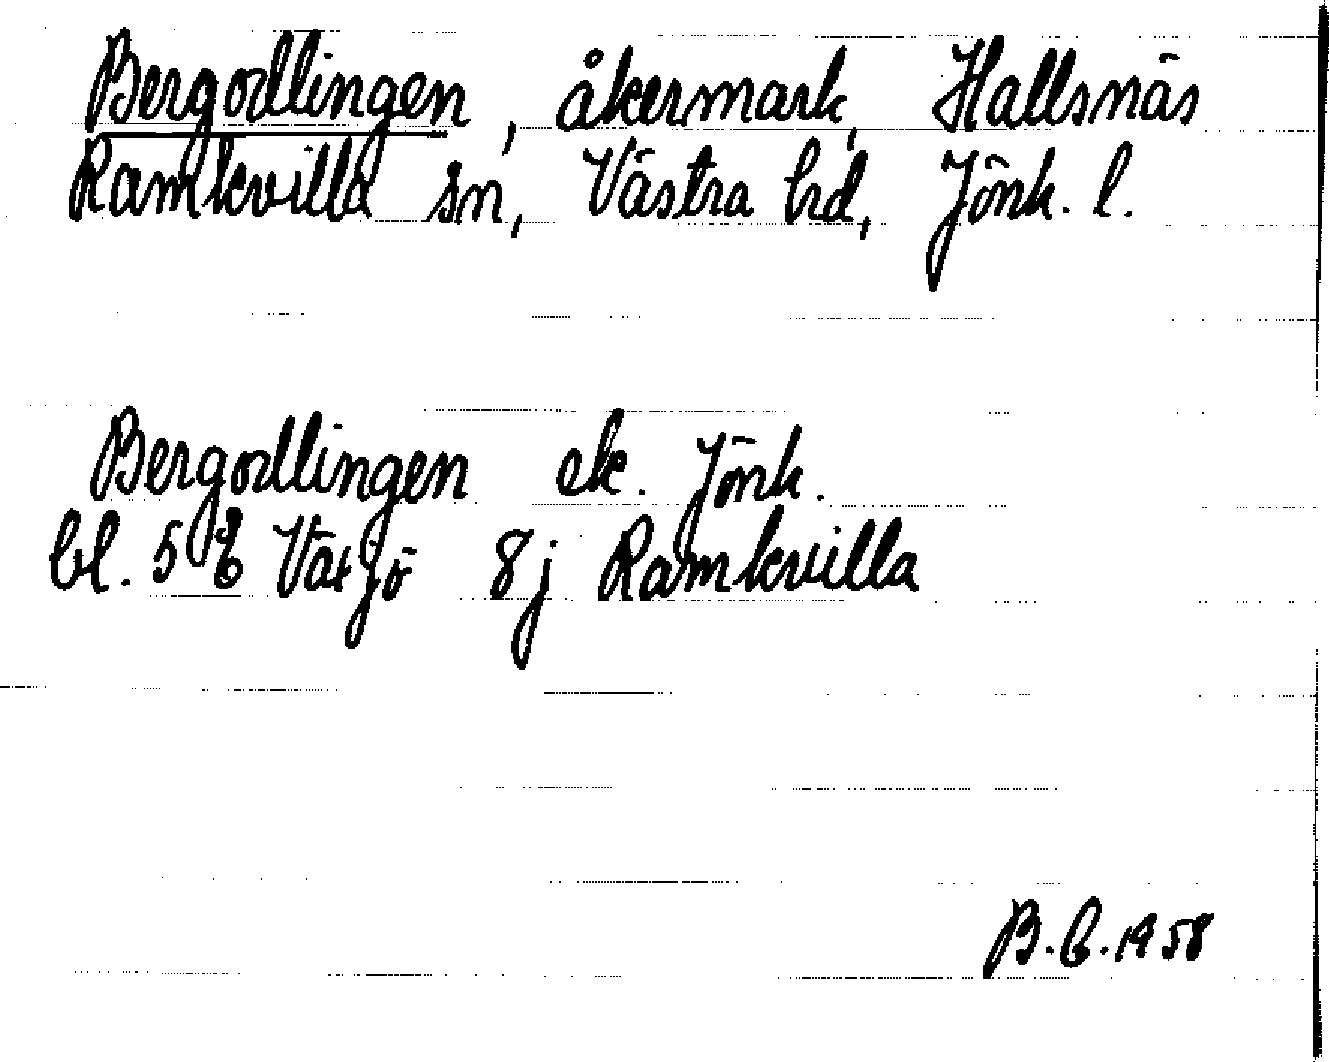 Bergodlingen, åkermark, Hallsnäs
Ramkvilla sn, Västra hd, Jönk. l.
Bergodlingen ek. Jönk.
bl. 5 E Växjö 8j Ramkvilla
B.E. 1958